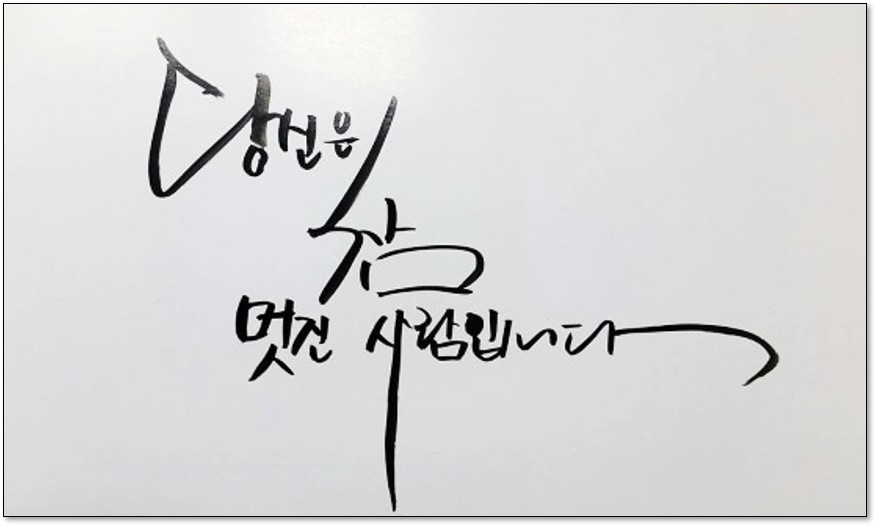 당신은
참
멋진 사람입니다